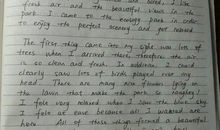 fresh air and the beautiful views in the
park. I came to the ecology park in order
to enjoy the perfect scenery and get relaxed
The first thing came into my sight was lots of
trees when I arrived there, therefore the air
is so clean and fresh. In addition, I could
clearly saw lots of birds played over my
head. There are many
the lawn that make the park so
I felt very relaxed when I saw the blue sky.
I felt at ease because all I wanted
here. All of these things formed a beautiful